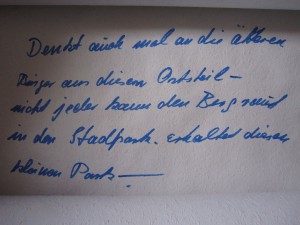 Denkt auch mal an die älteren
Bürger aus diesem Ortsteil –
nicht jeder kann den Berg rauf
in den Stadtpark. erhaltet diesen
kleinen Park —